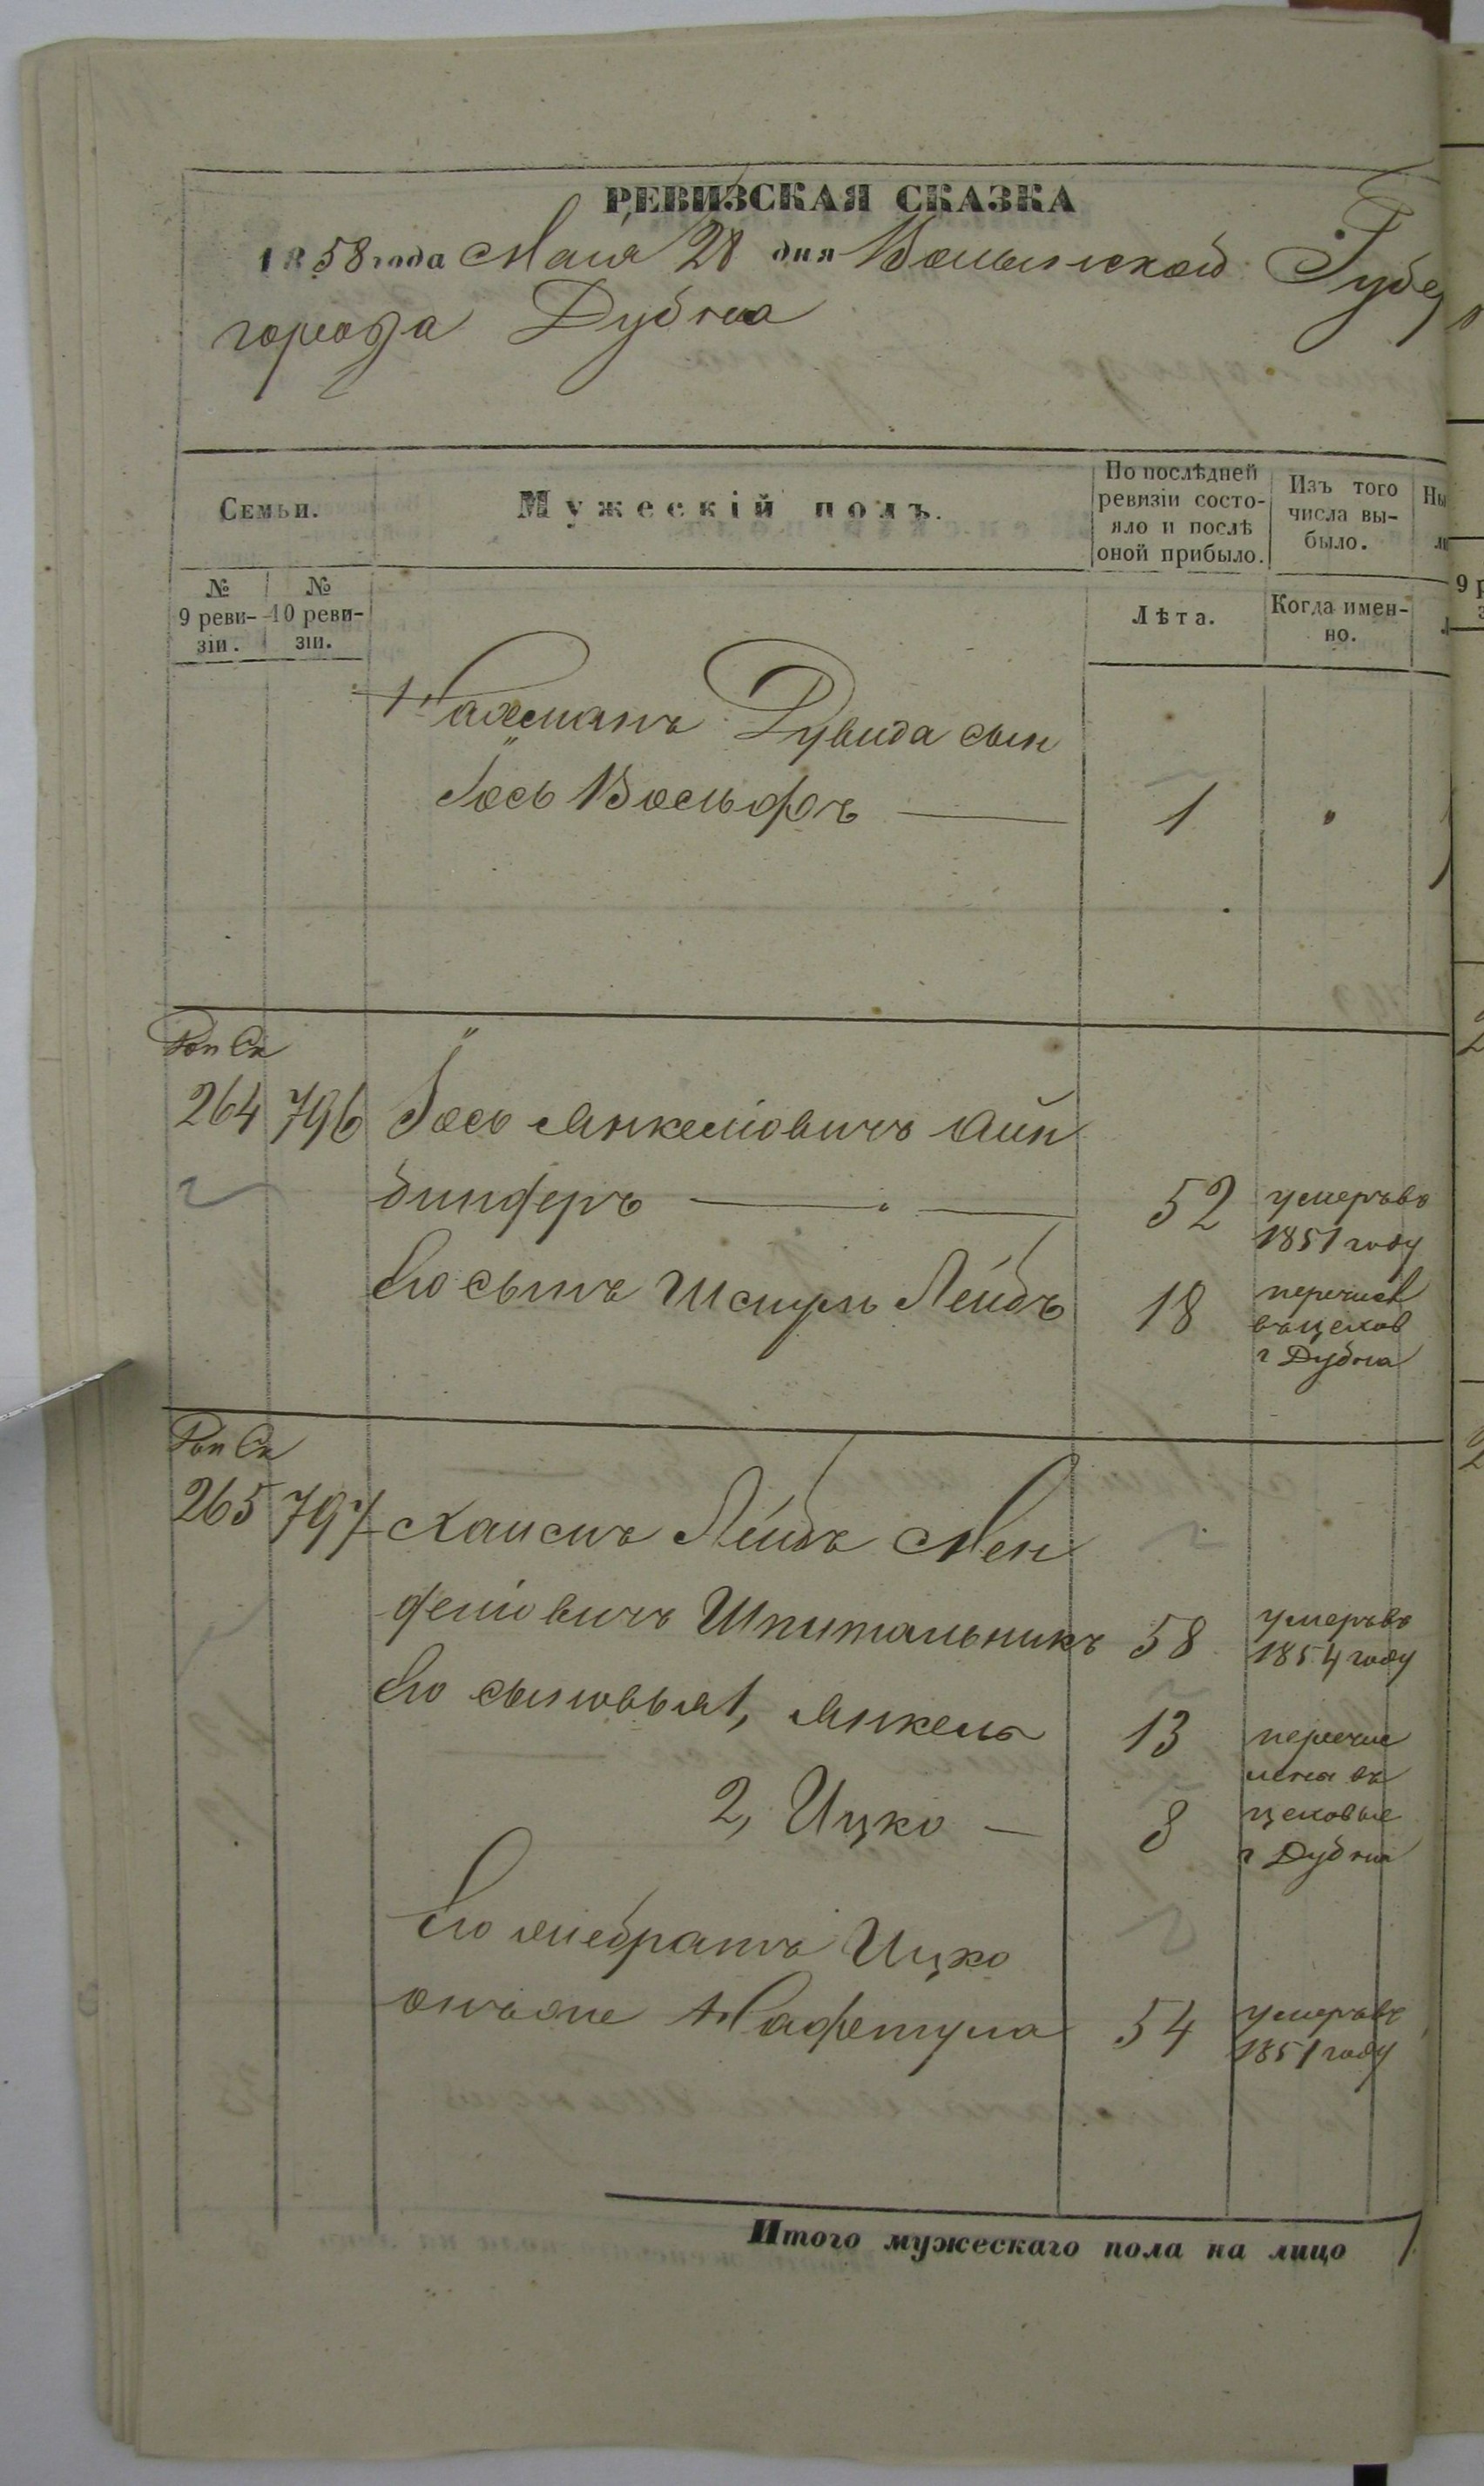 РЕВИЗСКАЯ СКАЗКА
1858 года Мая 28 дня Волынской Губе
города Дубна
Семьи.
Мужескій полъ.
По послѣдней ревизіи состо-
яло и послѣ оной прибыло.
Изъ того числа вы-
было.
Ны
№ 9 реви-
зіи.
№ 10 реви-
зіи.
Лѣта.
Когда имен-
но.
Нахманъ Рувида сын
Іось Вольфъ — 1
264 796 Іось Янкелiовичъ Айн
бинферъ — 52 умеръ въ
1851 году
Его сынъ Шмуль Лейбъ 18 перечисл
въ цехов
г Дубна
265 797 Хаимъ Лейбъ Мен
делiовичъ Шпитальникъ 58 умеръ въ
1854 году
Его сыновья 1, Янкель 13 перечис
лены въ
2, Ицко — 8 цеховые
г Дубна
Ицко
54 умеръ въ
1851 году
Итого мужескаго пола на лицо